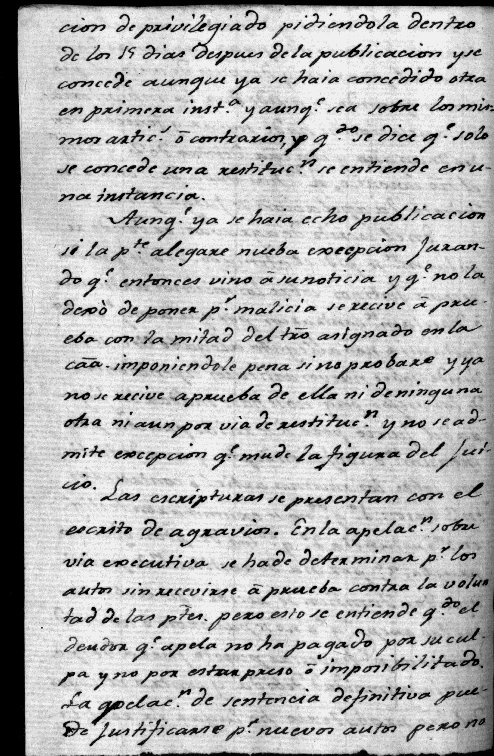 cion de privilegiado pidiendola dentro
de los 15 dias despues de la publicacion y se
concede aunque ya se haia concedido otra
en primera inst.ª y aunq.e sea sobre los mis-
mos artic.s ó contrarios, y q.do se dice q.e solo
se concede una restituc.n se entiende en u-
na instancia.
Aunq.e ya se haia echo publicacion
si la p.te alegare nueba excepcion juran-
do q.e entonces vino á su noticia y q.e no la
dexó de poner p.r malicia se recive á pru-
eba con la mitad del tr̃o asignado en la
cãa. imponiendole pena si no probare y ya
no se recive a prueba de ella ni de ninguna
otra ni aun por via de restituc.n y no se ad-
mite excepcion q.e mude la figura del jui-
cio.
Las escripturas se presentan con el
escrito de agravios. En la apelac.n sobre
via executiva se ha de determinar p.r los
autos sin recevirse á prueba contra la volun
tad de las p.tes. pero esto se entiende q.do el
deudor q.e apela no ha pagado por su cul-
pa y no por estar preso ó imposibilitado.
La apelac.n de sentencia definitiva pue-
de justificarse p.r nuevos autos pero no